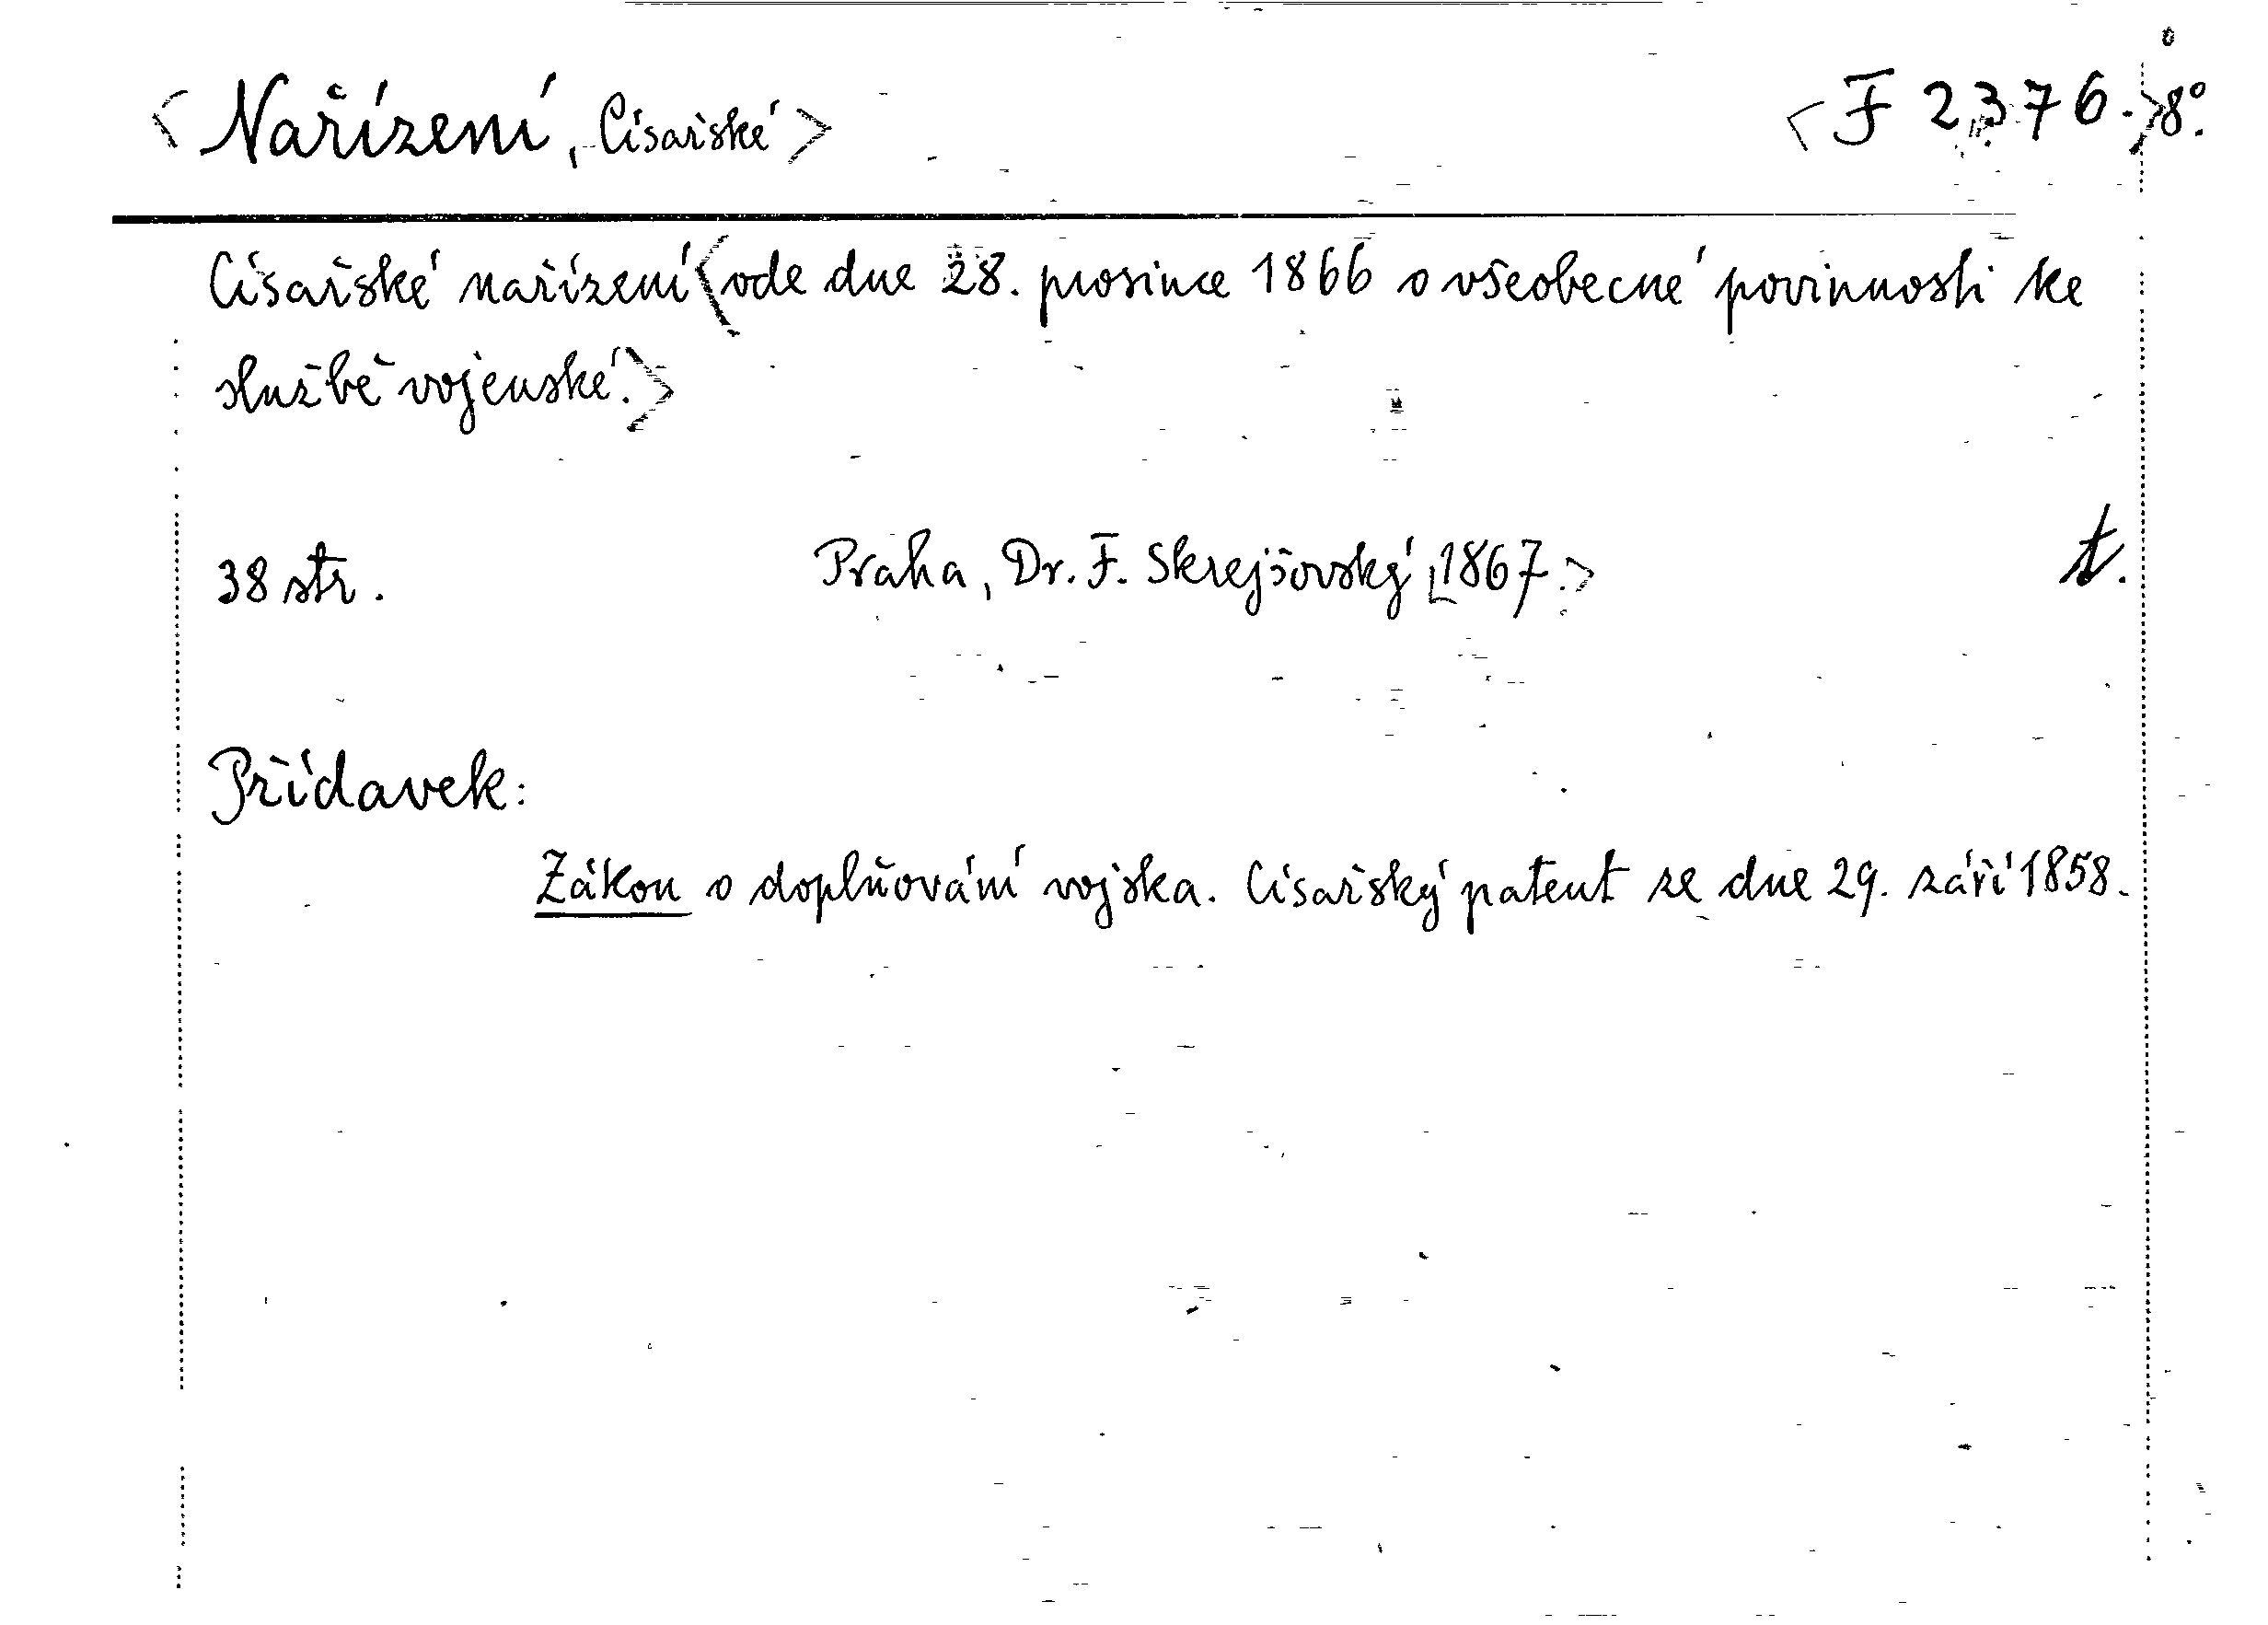 <Nařízení, Císařské> <F 2376.>8°.
Císařské nařízení <ode dne 28. prosince 1866 o všeobecné povinnosti ke
službě vojenské.>
38 str. Praha, Dr. F. Skrejšovský [1867.> t.
Přídavek:
Zákon o doplňování vojska. Císařský patent ze dne 29. září 1858.